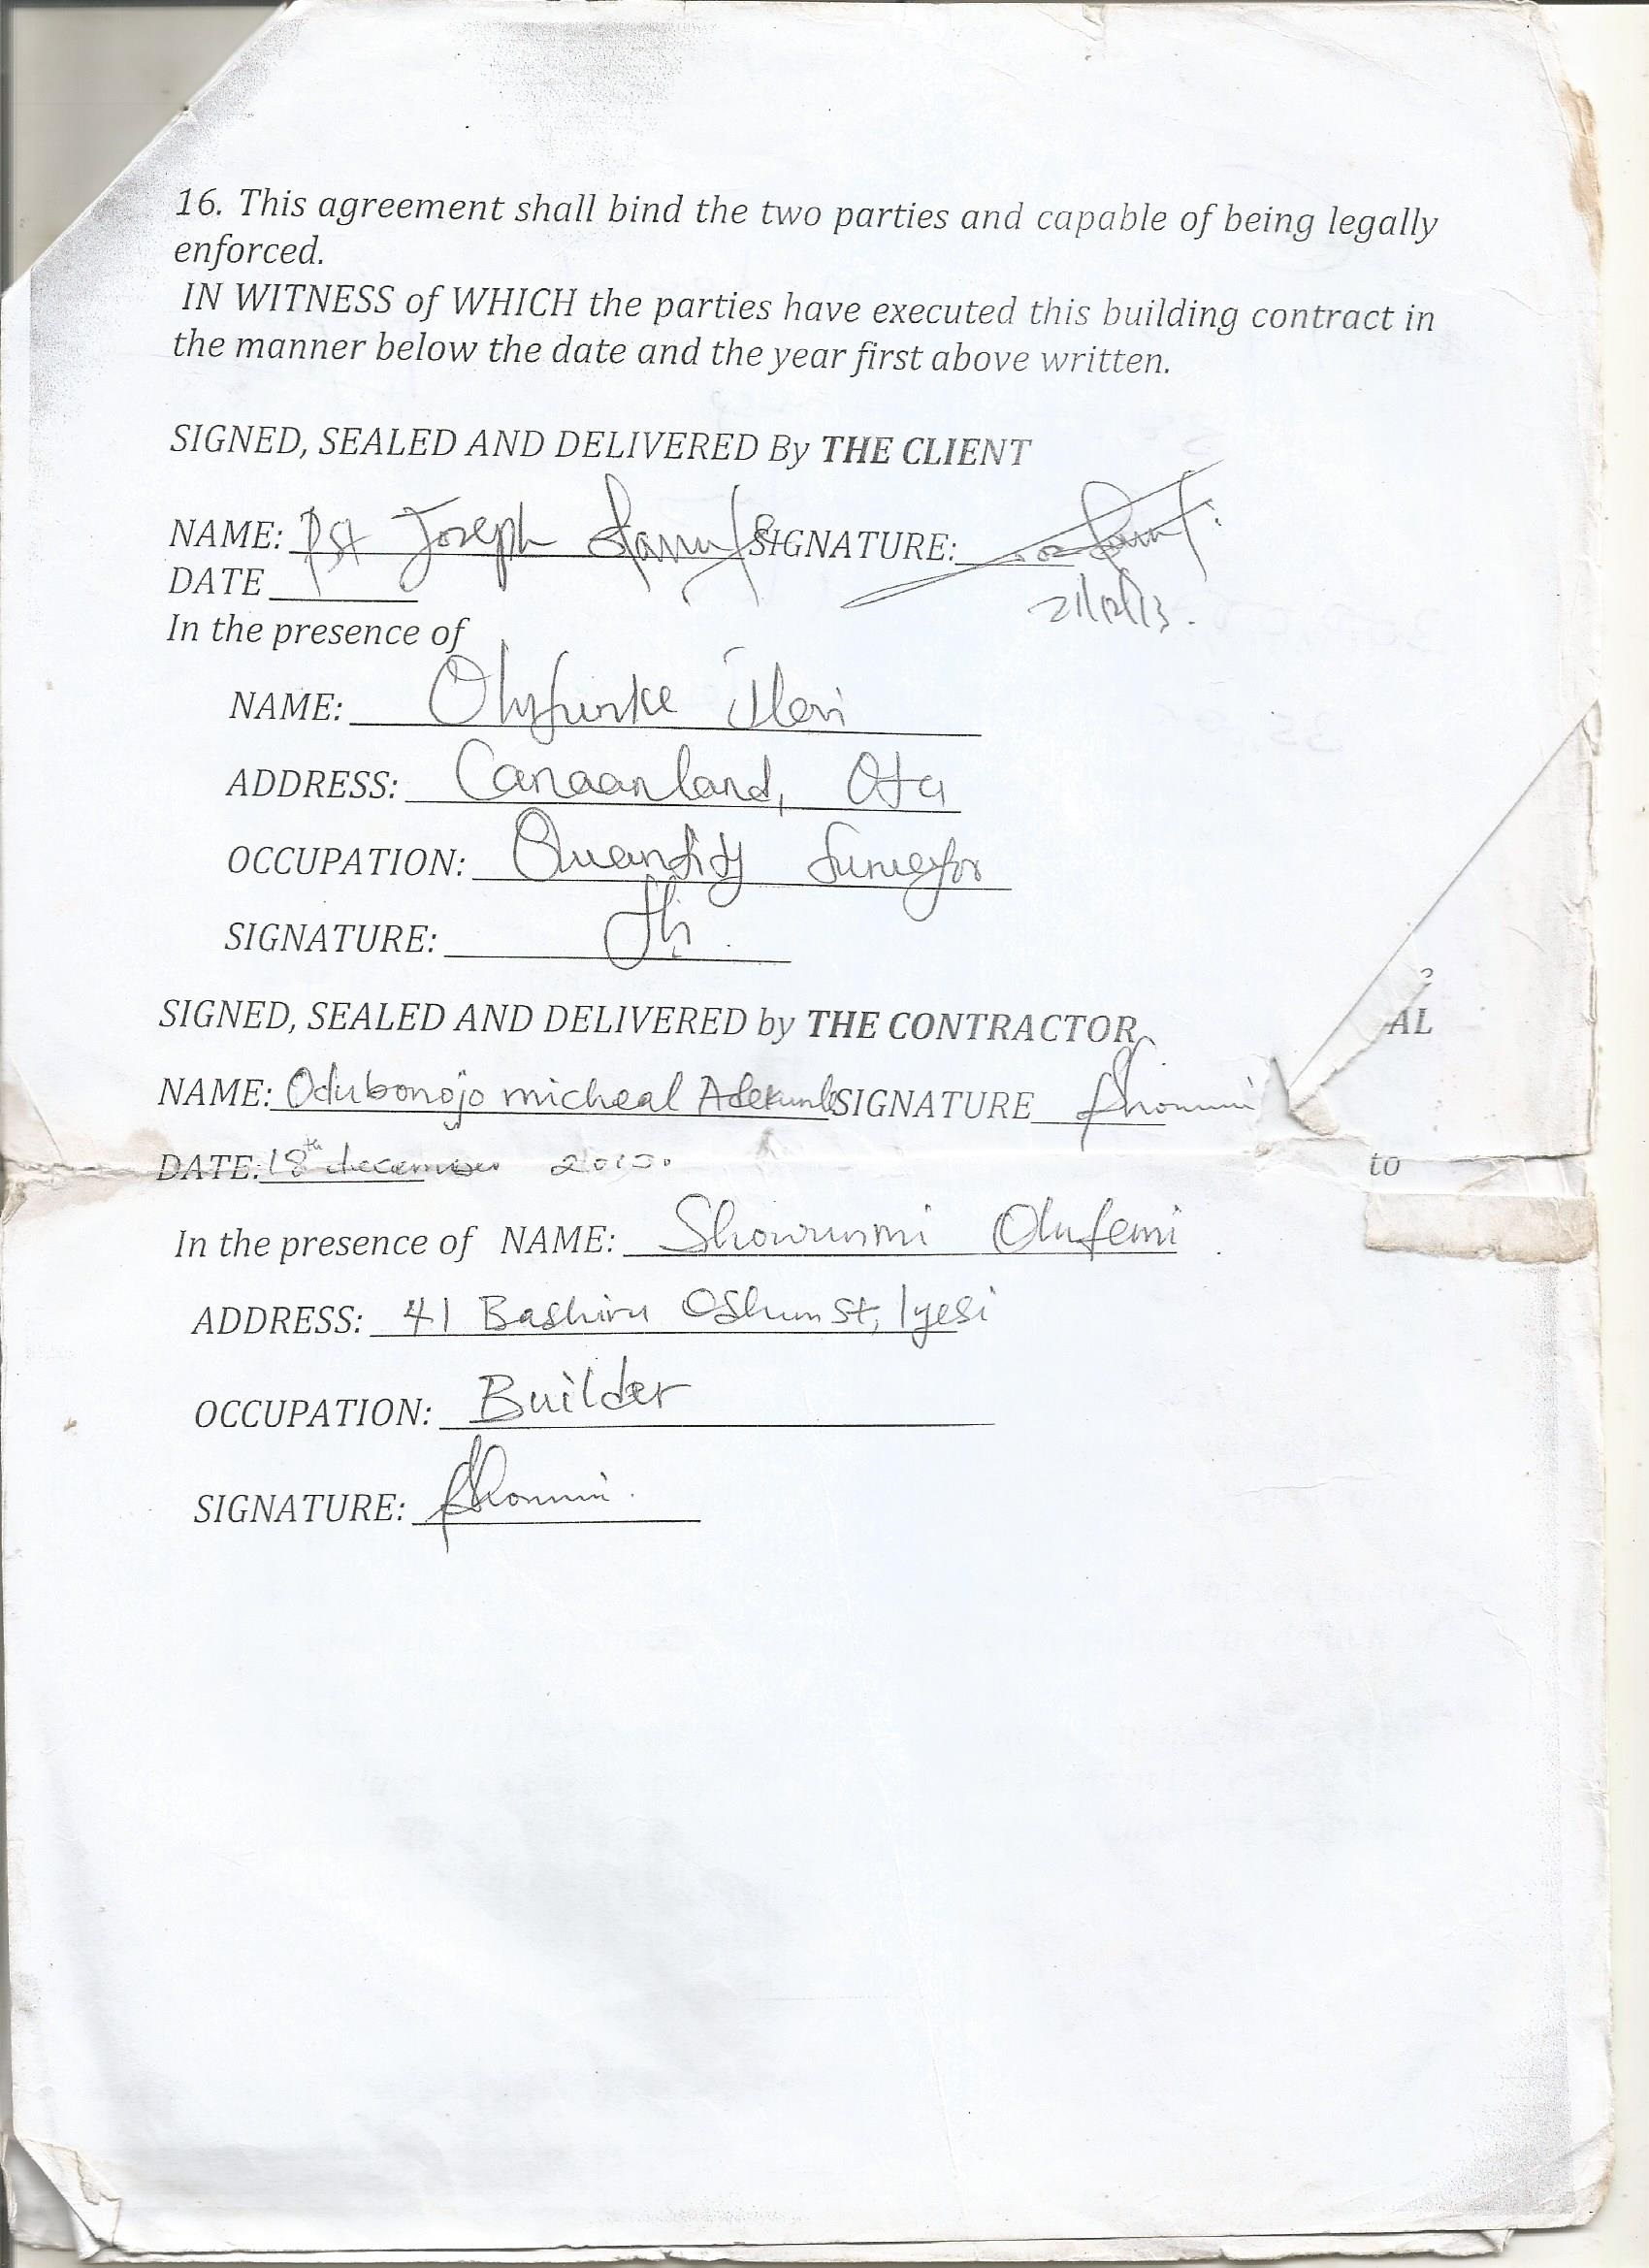 16. This agreement shall bind the two parties and capable of being legally
enforced.
IN WITNESS of WHICH the parties have executed this building contract in
the manner below the date and the year first above written.
SIGNED, SEALED AND DELIVERED By THE CLIENT
NAME: Pst Joseph SIGNATURE:
DATE 21/12/13.
In the presence of
NAME: Olufunke Ilori
ADDRESS: Canaanland, Ota
OCCUPATION: Quantity Surveyor
SIGNATURE:
SIGNED, SEALED AND DELIVERED by THE CONTRACTOR
AL
NAME: Odubonojo micheal Adekunle SIGNATURE
DATE: 18th december
to
In the presence of NAME: Showunmi Olufemi
ADDRESS: 41 Bashiru Oshun St, Iyesi
OCCUPATION: Builder
SIGNATURE: